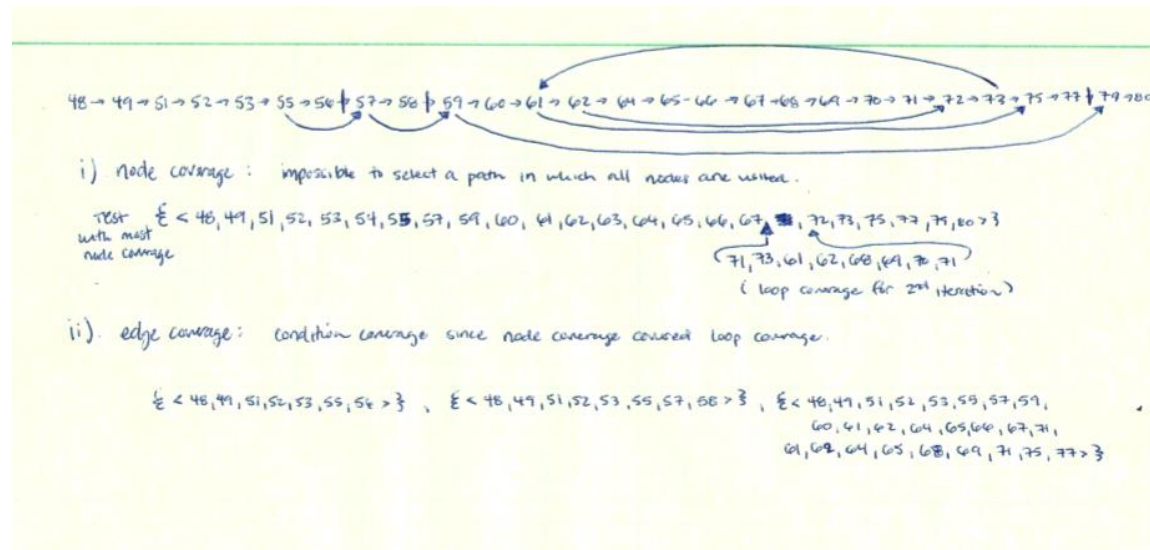 48 → 49 → 51 → 52 → 53 → 55 → 56 → 57 → 58 → 59 → 60 → 61 → 62 → 64 → 65 - 66 → 67 → 68 → 69 → 70 → 71 → 72 → 73 → 75 → 77 → 79 → 80
i) node coverage : impossible to select a path in which all nodes are visited.
Test with most node coverage
{ < 48, 49, 51, 52, 53, 54, 55, 57, 59, 60, 61, 62, 63, 64, 65, 66, 67, , 72, 73, 75, 77, 79, 80 > }
71, 73, 61, 62, 68, 69, 70, 71
( loop coverage for 2nd iteration )
ii). edge coverage : condition coverage since node coverage covered loop coverage.
{ < 48, 49, 51, 52, 53, 55, 56 > } , { < 48, 49, 51, 52, 53, 55, 57, 58 > } , { < 48, 49, 51, 52, 53, 55, 57, 59,
60, 61, 62, 64, 65, 66, 67, 71,
61, 62, 64, 65, 68, 69, 71, 75, 77 > }